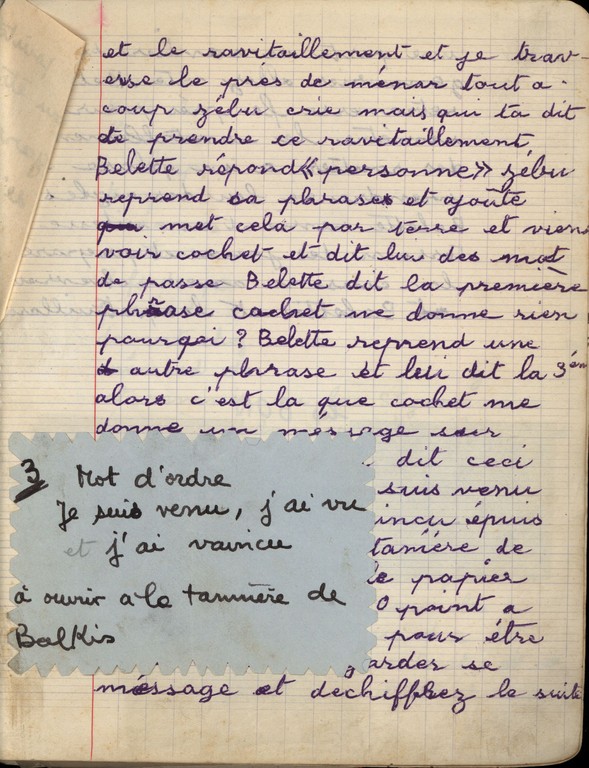 et le ravitaillement et je trav-
erse le prés de ménar tout a
coup zébu crie mais qui ta dit
de prendre ce ravitaillement
Belette répond «personne» zébu
reprend sa phrases et ajoute
met cela par terre et vien
voir cochet et dit lui des mot
de passe Belette dit la première
phrase cachet ne donne rien
pourqoi ? Belette reprend une
autre phrase et lui dit la 3ém
alors c'est la que cochet me
donne un méssage sur
dit ceci
suis venu
incu épuis
taniére de
le papier
0 point a
pour étre
garder se
méssage et dechiffrez le suite
3 Mot d'ordre
Je suis venu, j'ai vu
et j'ai vaincu
à ouvrir a la tannière de
Balkis